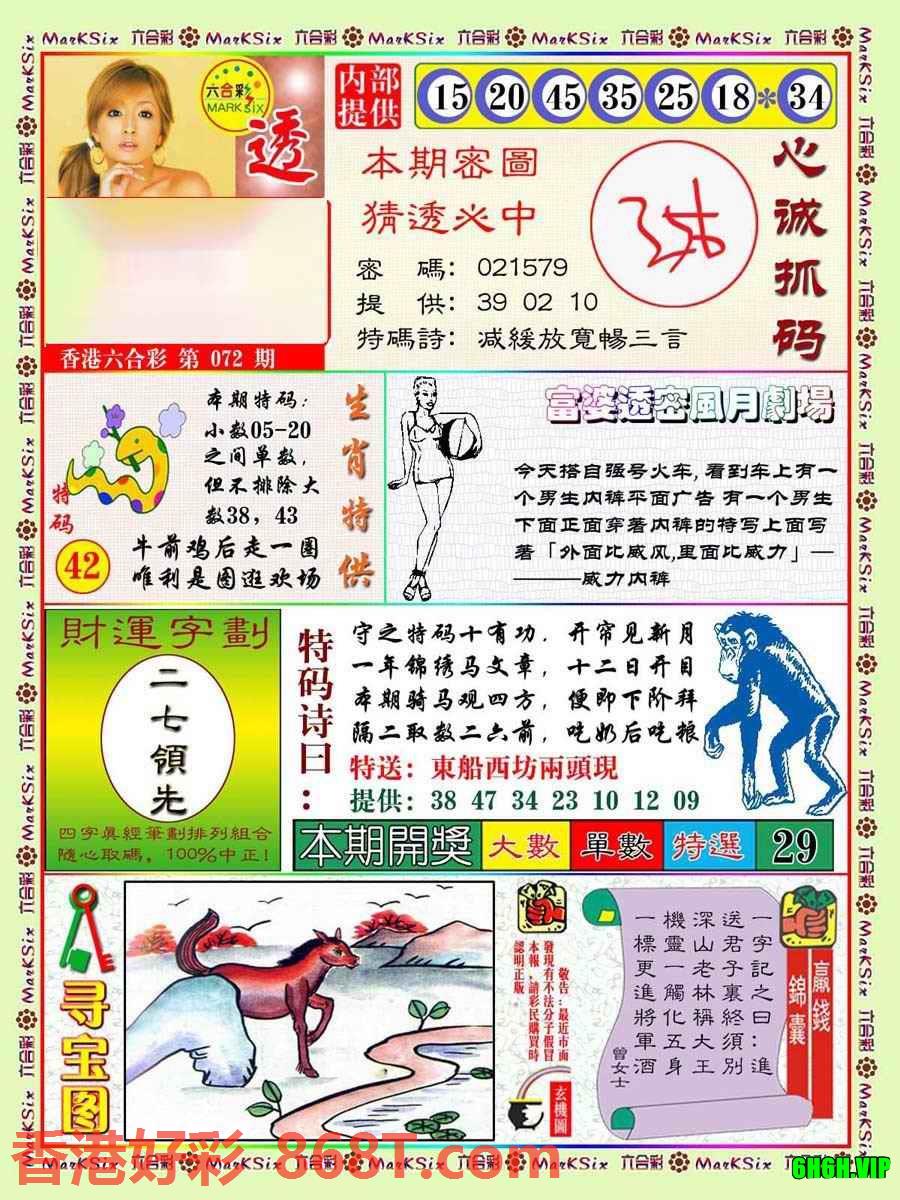 MarKSix 六合彩 MarKSix 六合彩 MarKSix 六合彩 MarKSix 六合彩 MarKSix 六合彩
六合彩
MARK SIX
透
内部
提供
15 20 45 35 25 18 * 34
本期密圖
猜透必中
心诚抓码
密 碼: 021579
提 供: 39 02 10
特碼詩: 减緩放寬暢三言
香港六合彩 第 072 期
本期特码:
小数05-20
之间单数,
但不排除大
数38, 43
生肖特供
特码
42
牛前鸡后走一圈
唯利是图逛欢场
富婆透密風月劇場
今天搭自强号火车,看到车上有一
个男生内裤平面广告 有一个男生
下面正面穿著内裤的特写上面写
著「外面比威风,里面比威力」—
———威力内裤
財運字劃
二七領先
四字真經筆劃排列組合
隨心取碼, 100%中正!
特码诗曰:
守之特码十有功, 开帘见新月
一年锦绣马文章, 十二日开目
本期骑马观四方, 便即下阶拜
隔二取数二六前, 吃奶后吃粮
特送: 東船西坊兩頭現
提供: 38 47 34 23 10 12 09
本期開獎 大數 單數 特選 29
寻宝图
敬告:最近市面
發現有不法分子假冒
本報,請彩民購買時
認明正版。
玄機圖
贏錢
錦囊
一字記之曰:進
送君子裏終須別
深山老林稱大王
機靈一觸化五身
一標更進將軍酒
曾女士
香港好彩.868T.com
MarKSix 六合彩 MarKSix 六合彩 MarKSix 六合彩 MarKSix 六合彩 MarKSix 六合彩
6H6H.VIP